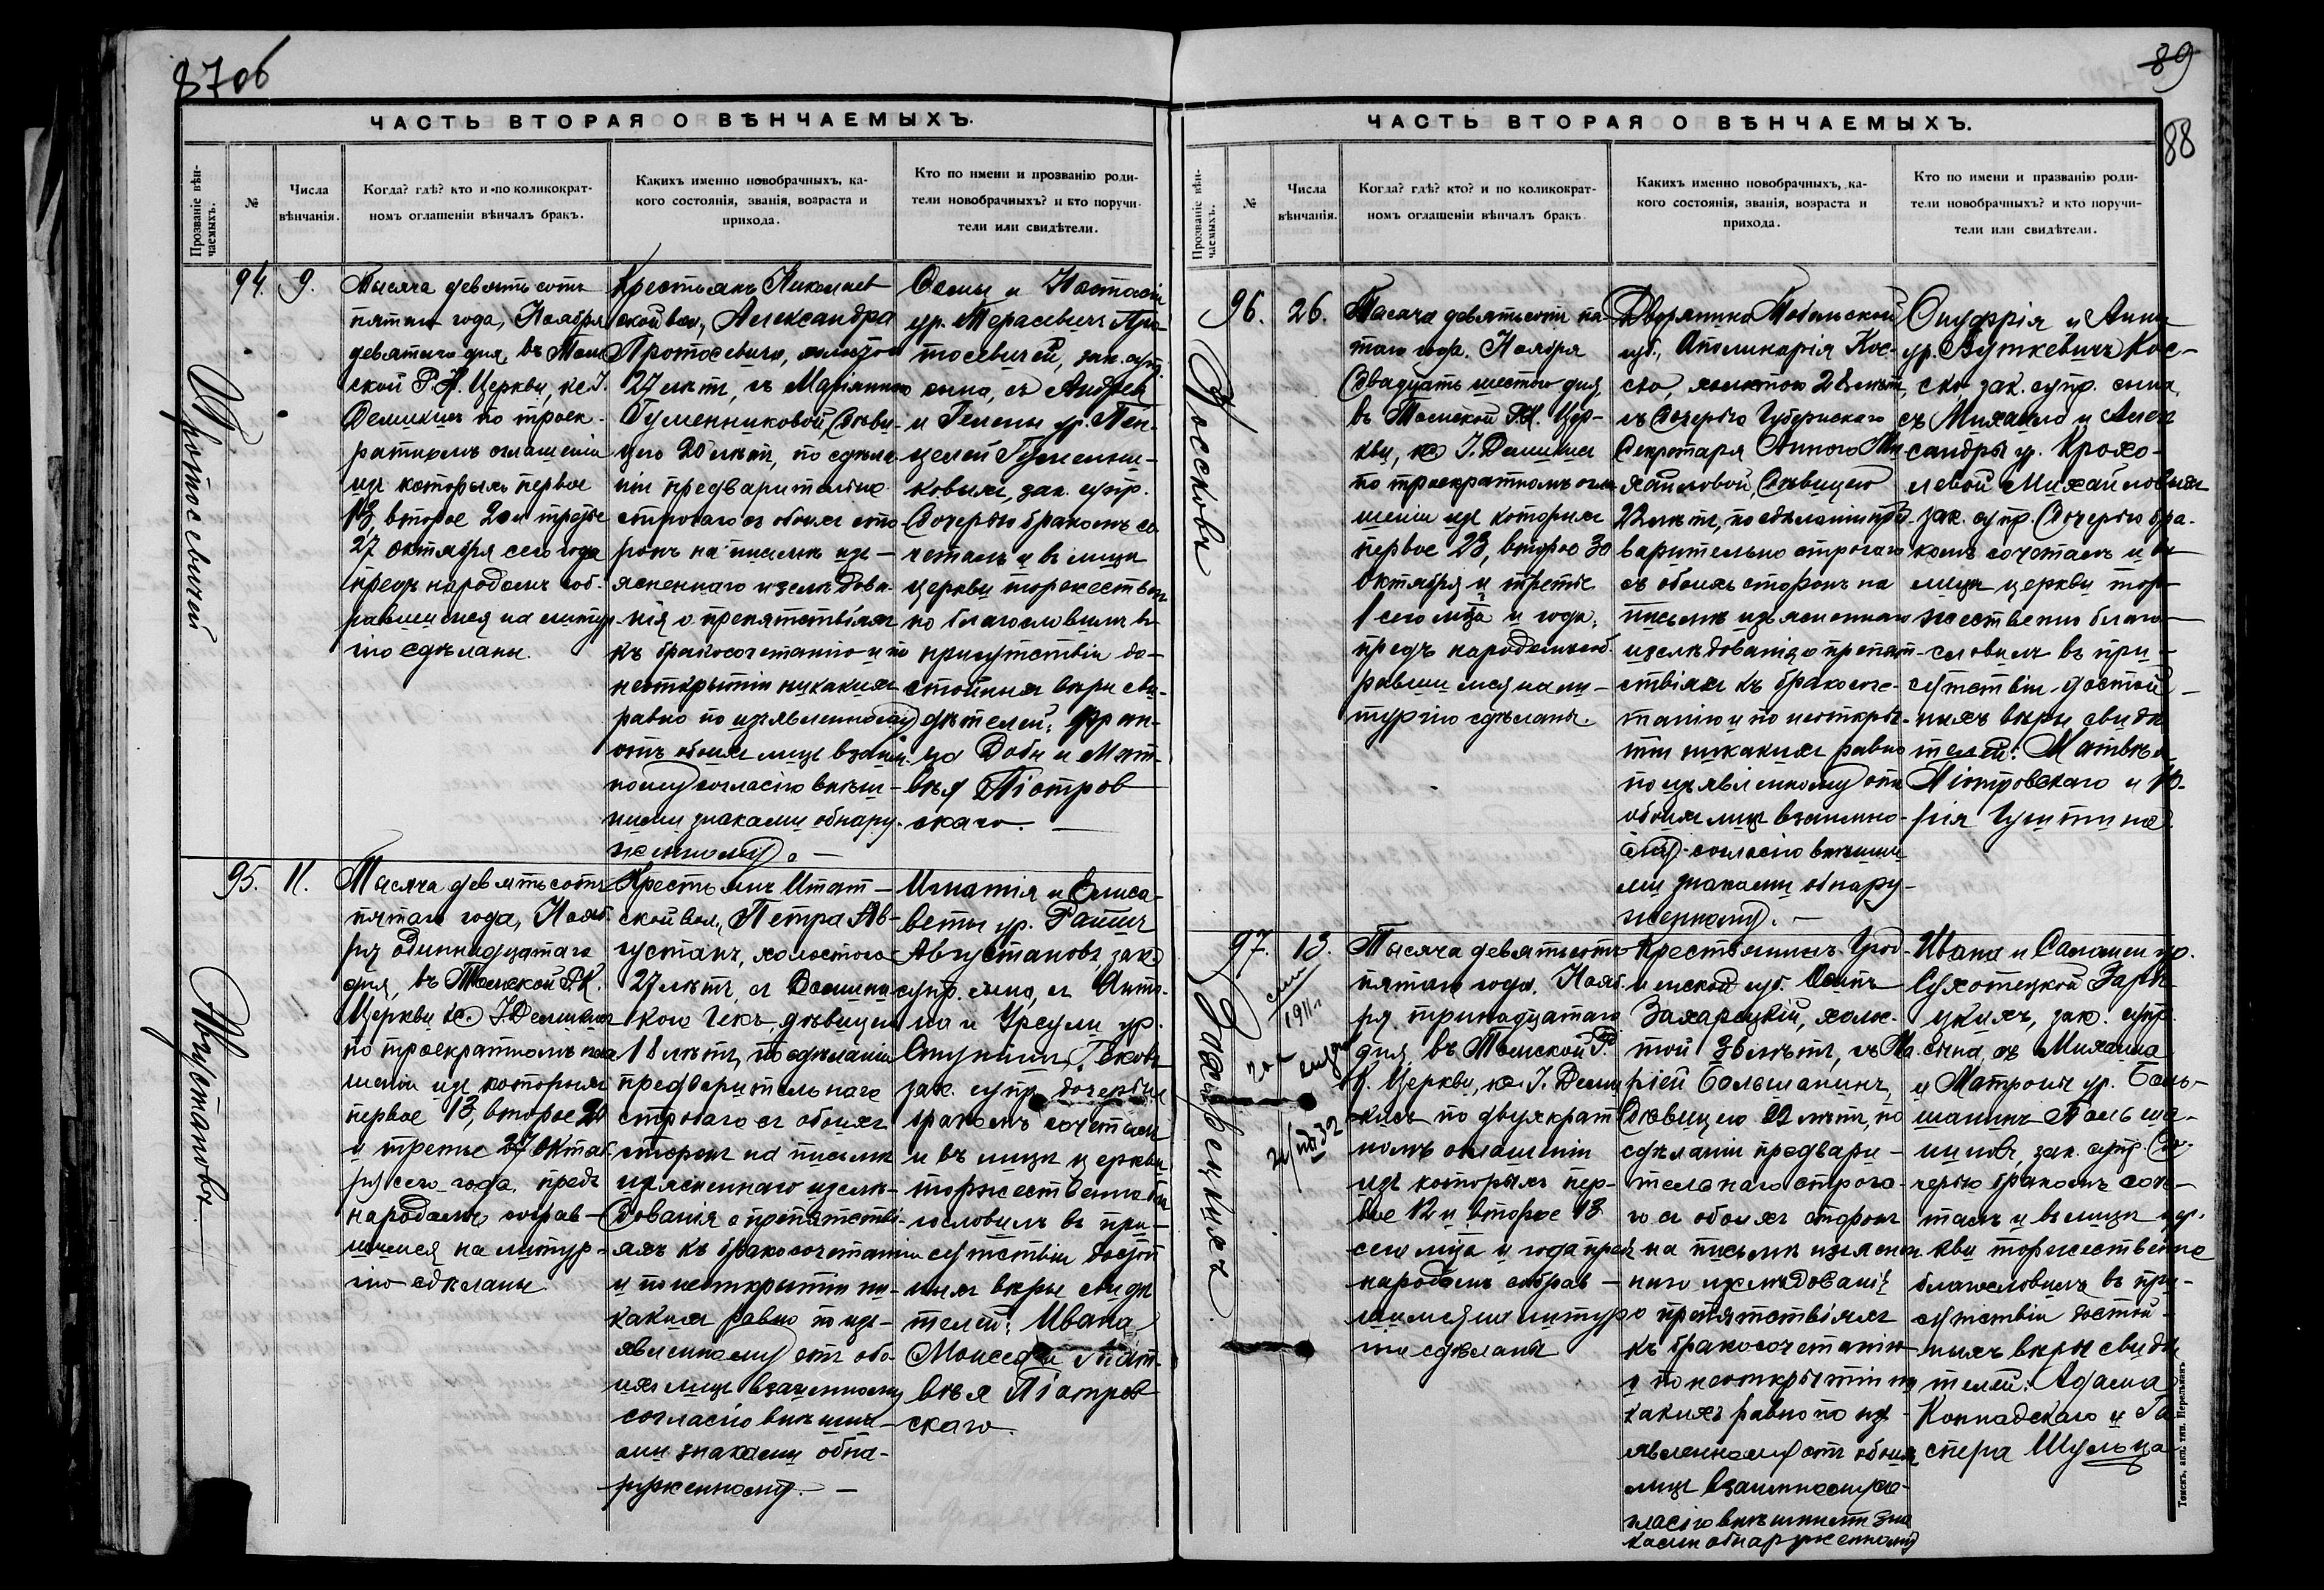 87 об
ЧАСТЬ ВТОРАЯ О ВѢНЧАЕМЫХЪ.
Прозваніе вѣн-
чаемыхъ.
№
Числа
вѣнчанія.
Когда? гдѣ? кто и по коликократ-
номъ оглашеніи вѣнчалъ бракъ.
Какихъ именно новобрачныхъ, ка-
кого состоянія, званія, возраста и
прихода.
Кто по имени и прозванію роди-
тели новобрачныхъ? и кто поручи-
тели или свидѣтели.
Протосевичей
94.
9.
Тысяча девятьсотъ
пятаго года, Ноября
девятаго дня, въ Том
ской Р. К. Церкви, кс. І.
Демикисъ по троек-
ратномъ оглашеніи
изъ которыхъ первое
13, второе 20 и третье
27 октября сего года
предъ народомъ соб-
равшимся на литур
гію сдѣланы.
Крестьянъ Николаев
ской вол., Александра
Протосевича, холостого
27 лѣтъ, съ Маріанною
Гуменниковой, дѣви-
цею 20 лѣтъ, по сдѣла
ніи предварительно
строгаго съ обоихъ сто
ронъ на письмѣ изъ-
ясненнаго изслѣдова-
нія о препятствіяхъ
къ бракосочетанію и по
неоткрытіи никакихъ
равно по изъявленному
отъ обоихъ лицъ взаим-
ному согласію внѣш-
ними знаками обнару-
женному. —
и Настасіи
ур. Тарасевичъ Про-
тосевичей, зак. супр.
сына, съ Андрея
и Гелены ур. Пен-
целей Гуменни-
ковыхъ, зак. супр.
дочерью бракомъ со-
четалъ и въ лицѣ
церкви торжествен
но благословилъ въ
присутствіи до-
стойныхъ вѣры сви-
дѣтелей: Фран-
ца Доби и Мат-
вѣя Піотров
скаго. —
Августановъ
95.
11.
Тысяча девятьсотъ
пятаго года, Нояб-
ря одиннадцатаго
дня, въ Томской Р. К.
Церкви кс. І. Демикисъ
по троекратномъ огла
шеніи изъ которыхъ
первое 13, второе 20
и третье 27 Октяб
ря сего года предъ
народомъ собрав-
шимся на литур-
гію сдѣланы.
Крестьянъ Итат-
ской вол., Петра Ав-
густанъ, холостого
27 лѣтъ, съ Домини
кою Чекъ, дѣвицею
18 лѣтъ, по сдѣланіи
предварительнаго
строгаго съ обоихъ
сторонъ на письмѣ
изъясненнаго изслѣ-
дованія о препятстві-
яхъ къ бракосочетанію
и по неоткрытіи ни-
какихъ равно по изъ-
явленному отъ обо-
ихъ лицъ взаимному
согласію внѣшни-
ми знаками обна-
руженному. —
Игнатія и Елиса-
веты ур.
Августановъ зак.
супр. сына, съ Анто-
на и Урсули ур.
зак. супр. дочерью
бракомъ сочеталъ
и въ лицѣ церкви
торжественно бла
гословилъ въ при-
сутствіи достой
ныхъ вѣры свидѣ
телей: Ивана
и Мат-
вѣя Піотров
скаго.
89
88
ЧАСТЬ ВТОРАЯ О ВѢНЧАЕМЫХЪ.
Прозваніе вѣн-
чаемыхъ.
№
Числа
вѣнчанія.
Когда? гдѣ? кто? и по коликократ-
номъ оглашеніи вѣнчалъ бракъ.
Какихъ именно новобрачныхъ, ка-
кого состоянія, званія, возраста и
прихода.
Кто по имени и празванію роди-
тели новобрачныхъ? и кто поручи-
тели или свидѣтели.
96.
26.
Тысяча девятьсотъ пя-
таго года. Ноября
Двадцать шестого дня,
въ Томской Р. К. Цер-
кви, кс. І. Демикисъ
по троекратномъ огла
шеніи изъ которыхъ
первое 23, второе 30
октября и третье
1 сего мца и года,
предъ народомъ соб-
равшимся на ли-
тургію сдѣланы.
Дворянина Тобольской
губ., Аполинарія Кос-
ско, холостого 28 лѣтъ,
съ дочерью Губернскаго
Секретаря Анною Ми
хайловой, дѣвицею
22 лѣтъ, по сдѣланіи пред-
варительно строгаго
съ обоихъ сторонъ на
письмѣ изъясненнаго
изслѣдованія о препят-
ствіяхъ къ бракосоче-
танію и по неоткры-
тіи никакихъ равно
по изъявленному отъ
обоихъ лицъ взаимно-
му согласію внѣшни
ми знаками обнару-
женному. —
Онуфрія и Анны
ур. Вуткевичъ Кос-
ско, зак. супр. сына,
съ Михаила и Алек
сандры ур. Крохо-
левой Михайловыхъ
зак. супр. дочерью бра-
комъ сочеталъ и въ
лицѣ церкви тор-
жественно благо-
словилъ въ при-
сутствіи достой-
ныхъ вѣры свидѣ
телей: Матвѣя
Піотровскаго и Ю-
рія
97.
13.
Тысяча девятьсотъ
пятаго года. Нояб-
ря тринадцатаго
дня, въ Томской Р.
К. Церкви, кс. І. Деми
кисъ по двукрат
номъ оглашеніи
изъ которыхъ пер-
вое 12 и второе 13
сего мца и года предъ
народомъ собрав-
шимся на литур
гіи сдѣланы
Крестьянинъ Грод-
ненской губ. Осипъ
Захарецкій, холос-
той лѣтъ, съ Ма-
ріей Большанинъ,
дѣвицею 22 лѣтъ, по
сдѣланіи предвари-
тельнаго строга-
го съ обоихъ сторонъ
на письмѣ изъяснен
наго изслѣдованія
о препятствіяхъ
къ бракосочетанію
и по неоткрытіи ни
какихъ равно по изъ-
явленному отъ обоихъ
лицъ взаимному со-
гласію внѣшними зна
ками обнаруженному
Ивана и Саломеи ур.
зак. супр.
сына, съ Михаила
и Матроны ур.
зак. супр. до-
черью бракомъ соче-
талъ и въ лицѣ цер-
кви торжественно
благословилъ въ при-
сутствіи достой-
ныхъ вѣры свидѣ
телей: Адама
и Га
спера Шульца
Томскъ, акц. тип. Перельманъ